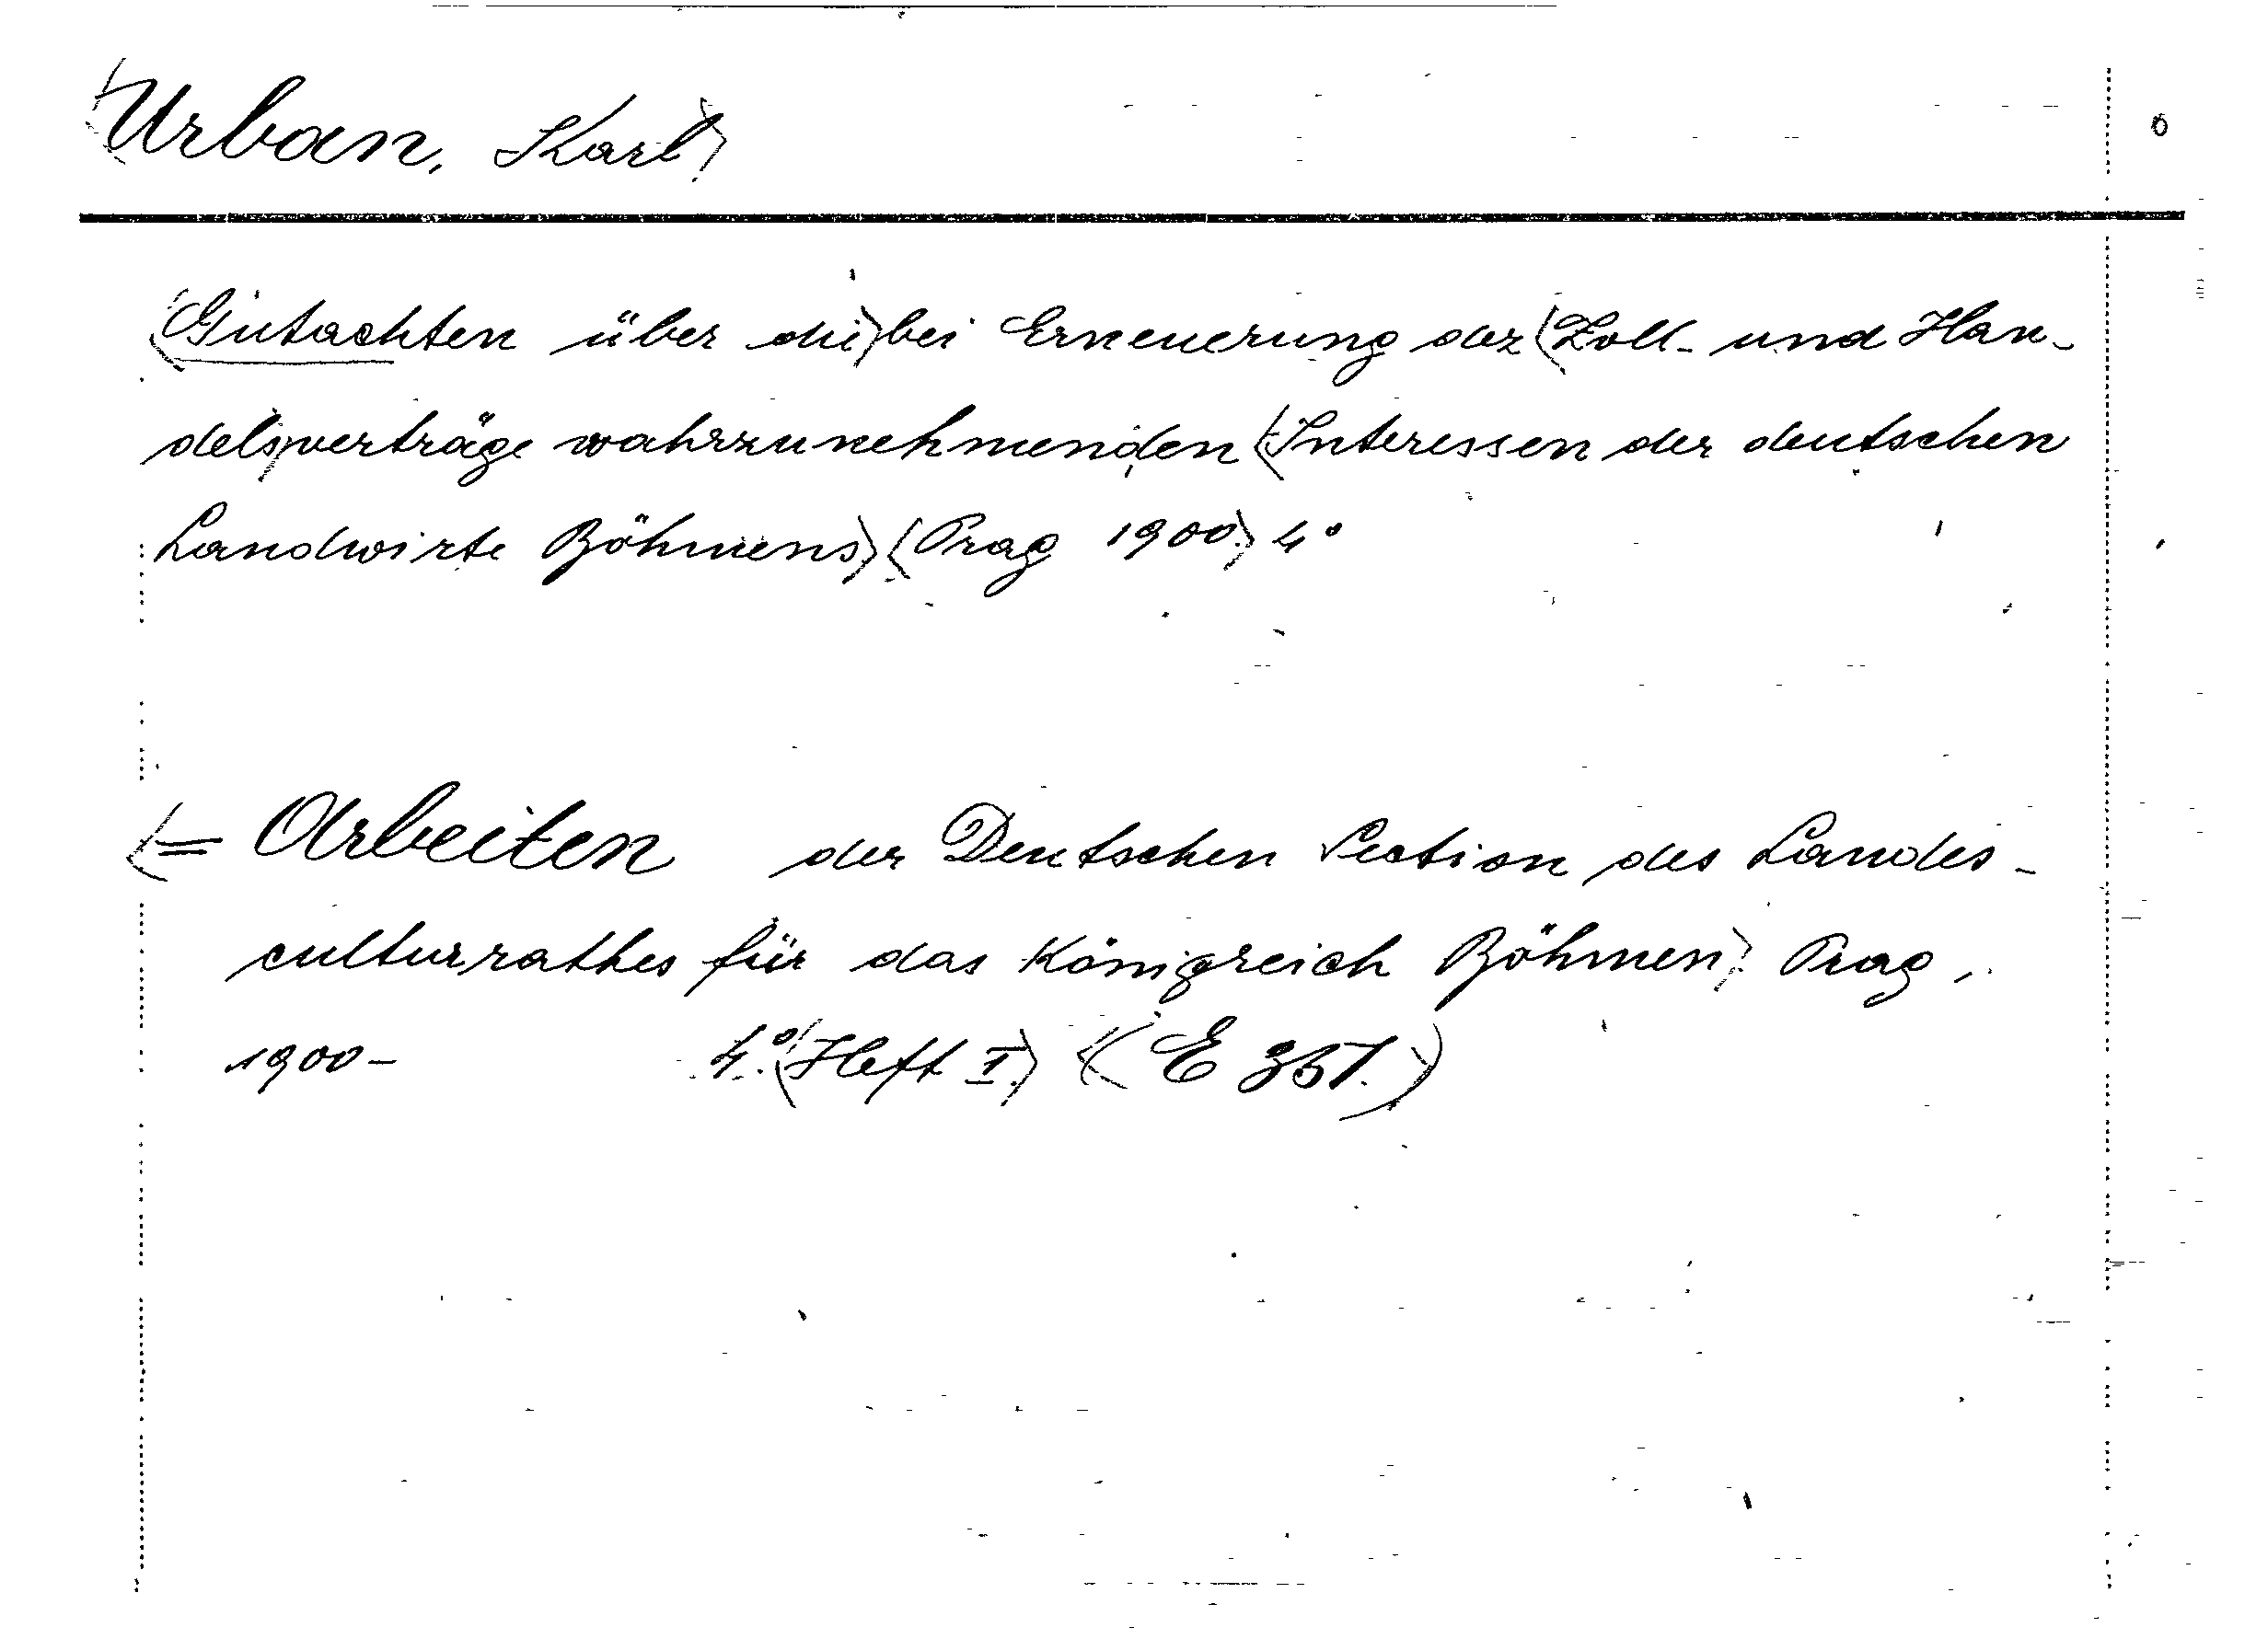 Urban, Karl
Gutachten über die bei Erneuerung der Zoll- und Han-
delsverträge wahrzunehmenden Interessen der deutschen
Landwirte Böhmens (Prag 1900.) 4°
= Arbeiten der Deutschen Section des Landes-
culturrathes für das Königreich Böhmen. Prag,
1900- 4° (Heft I.) (E 357.)